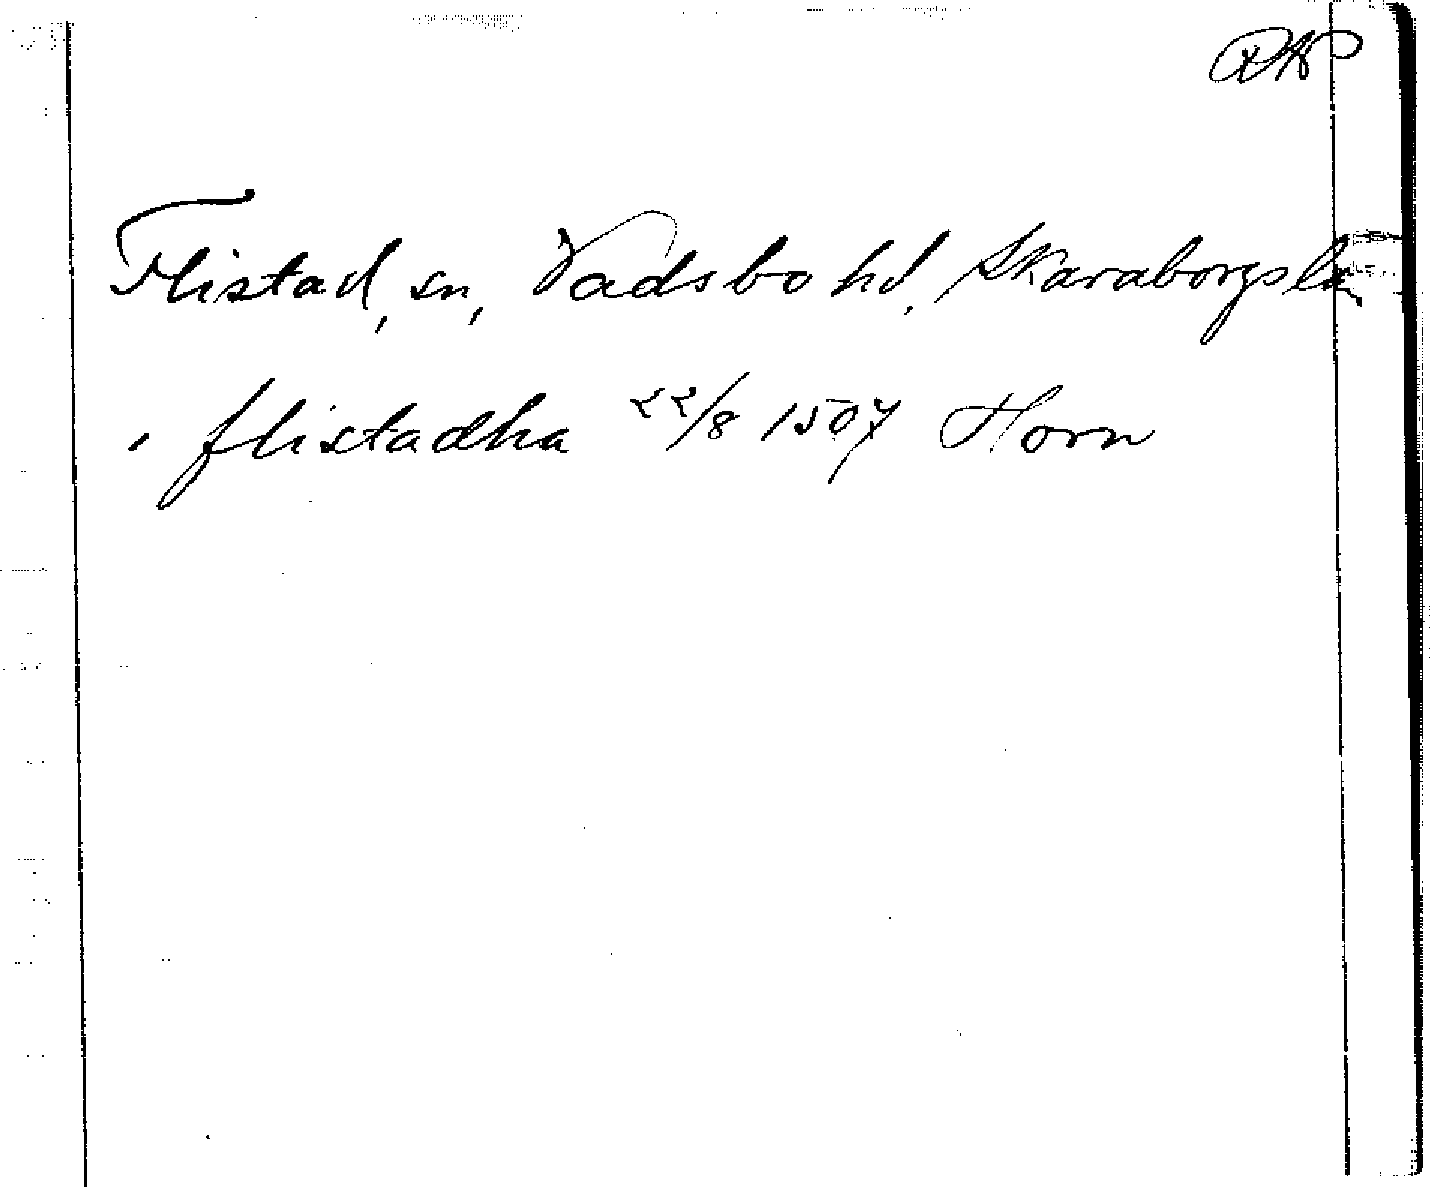 RAP
Flistad, sn, Vadsbo hd, Skaraborgs län
, flistadha 22/8 1507 Horn